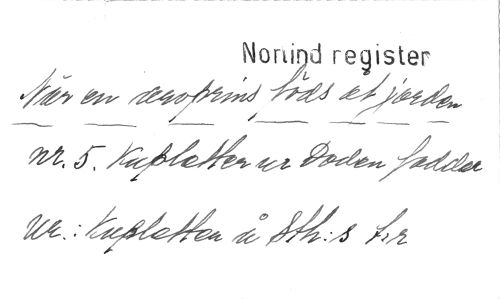 Nomind register
När en arvprins föds åt jorden
nr. 5. Kupletten ur Doden fadder
Ur.: Kupletten å Sth:s t:r